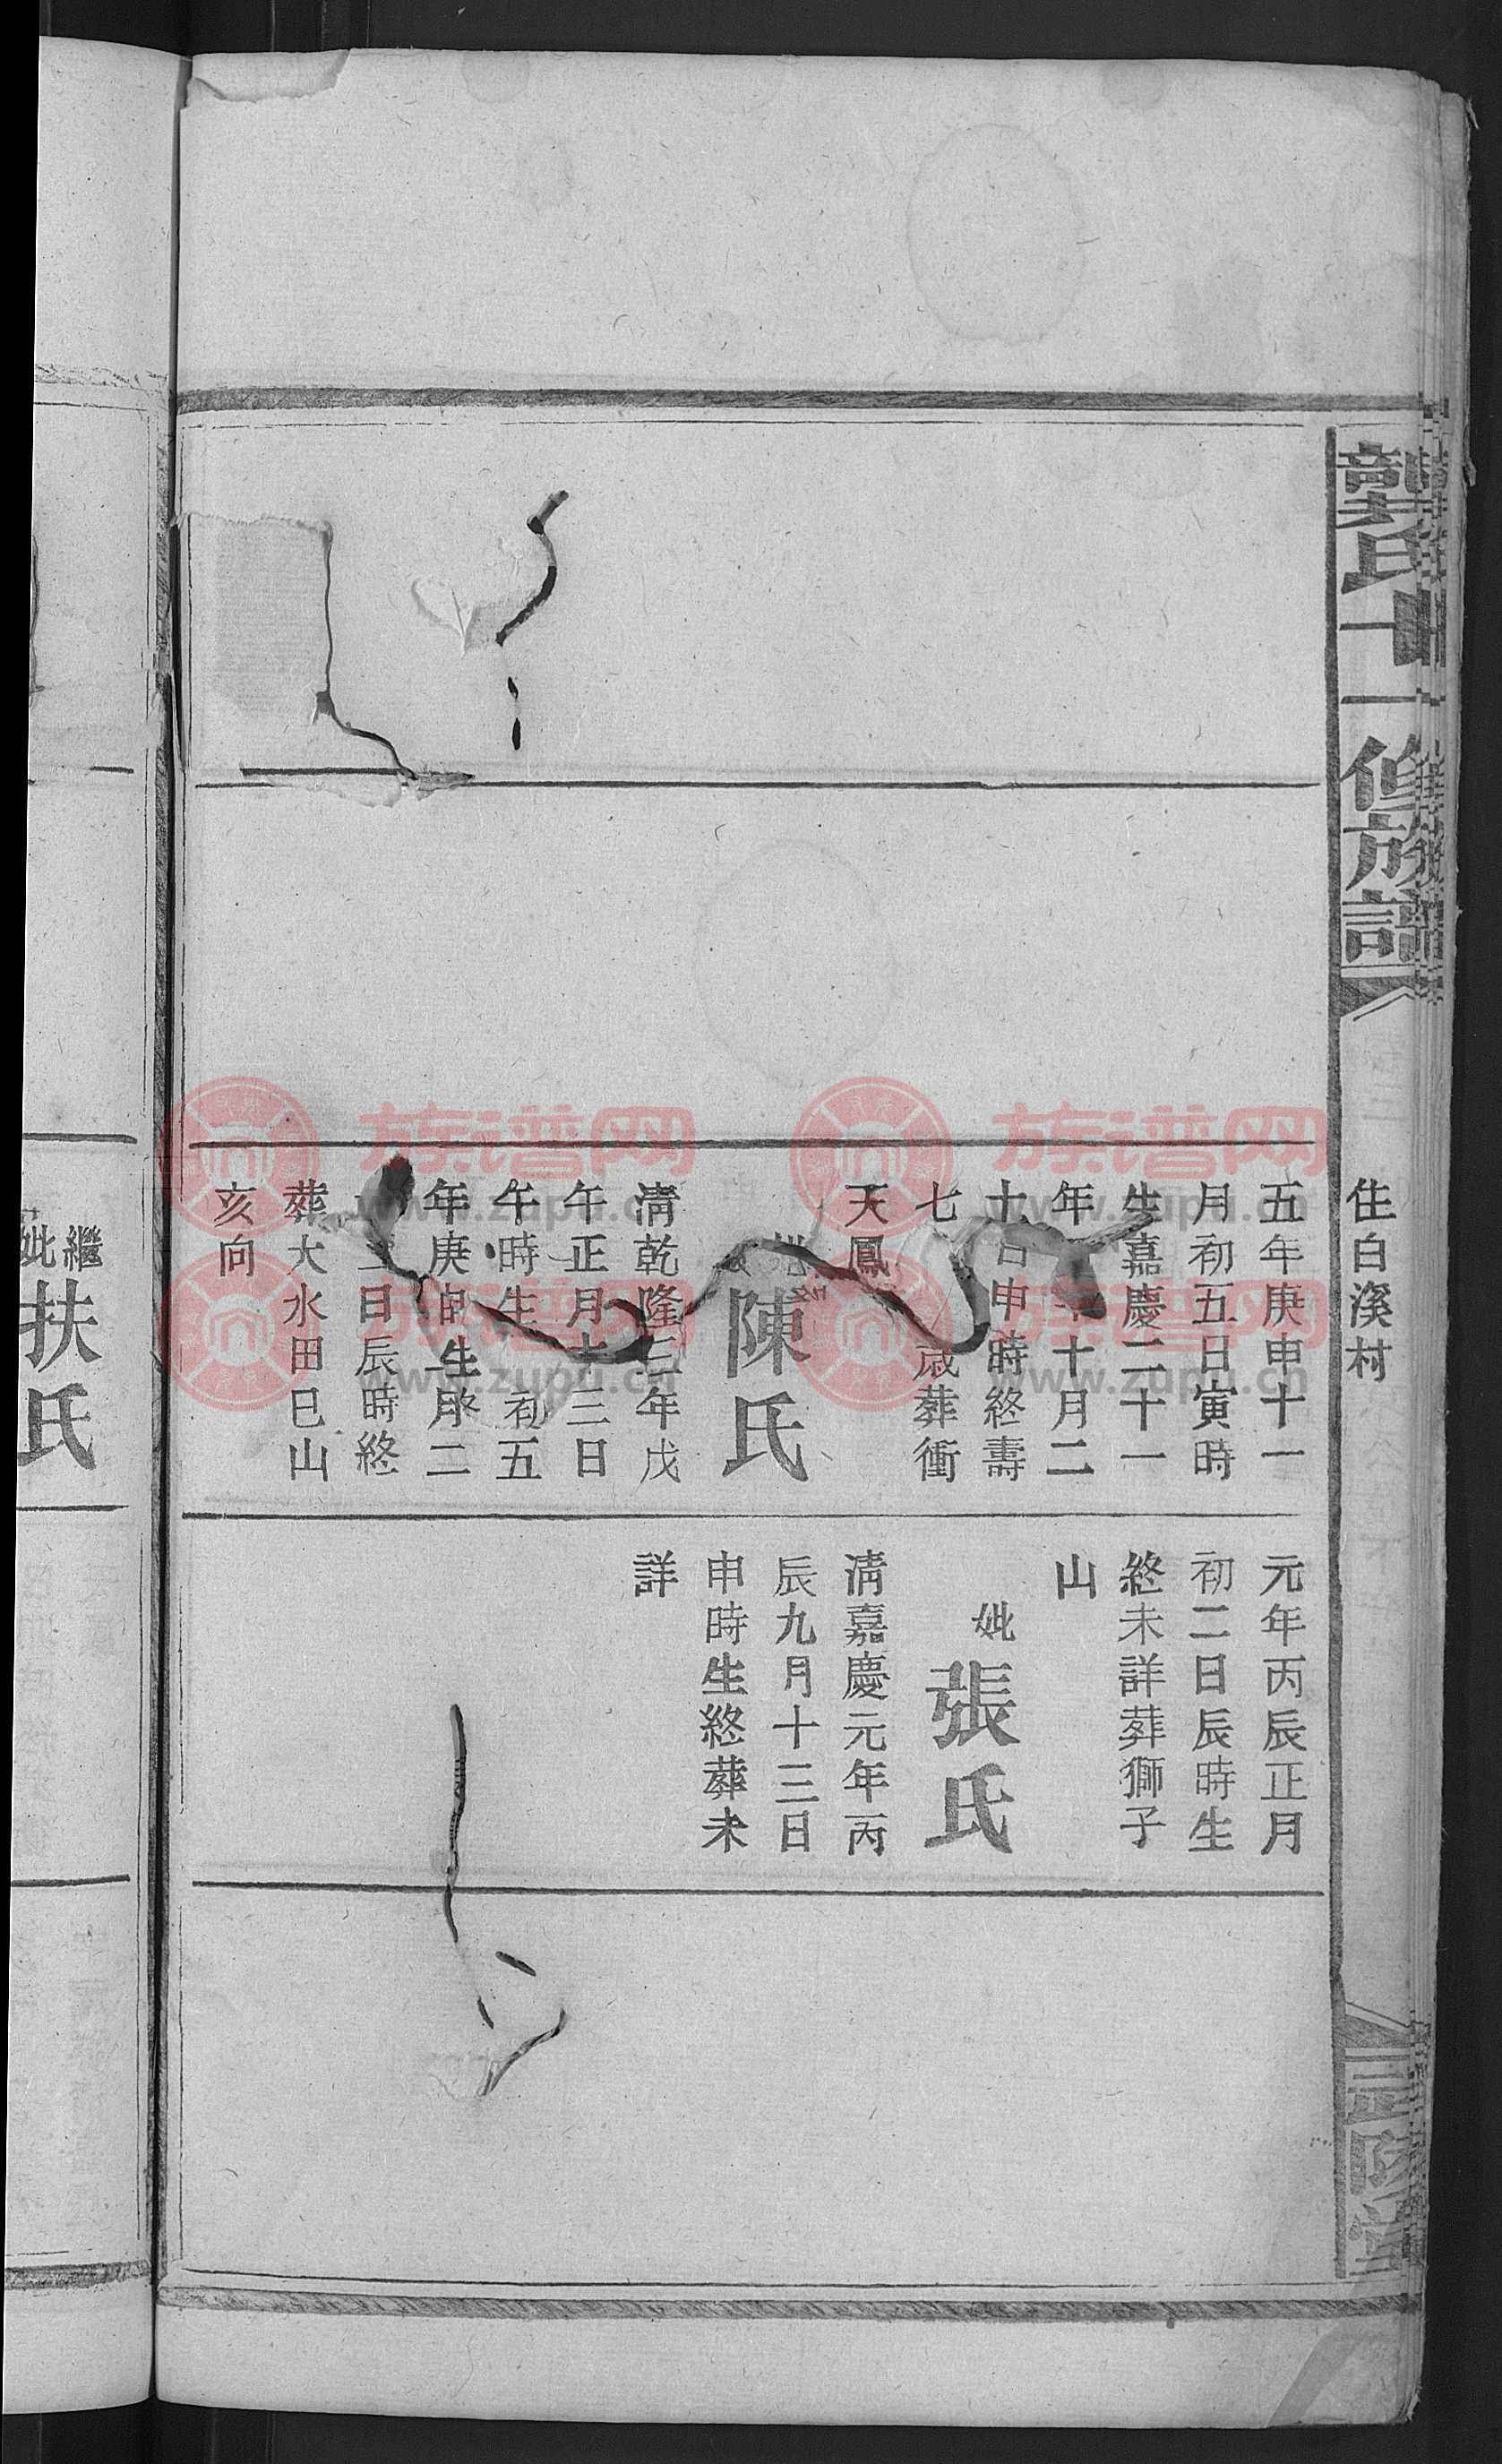 龔氏十一修族譜
住白溪村
五年庚申十一
月初五日寅時
生嘉慶二十一
年十月二
十日申時終壽
七歲葬衝
天鳳
陳氏
清乾隆三年戊
午正月十三日
午時生初五
年庚申生月二
日辰時終
葬大水田巳山
亥向
元年丙辰正月
初二日辰時生
終未詳葬獅子
山
妣張氏
清嘉慶元年丙
辰九月十三日
申時生終葬未
詳
繼妣扶氏
族谱网
www.zupu.cn
族谱网
www.zupu.cn
族谱网
www.zupu.cn
族谱网
www.zupu.cn